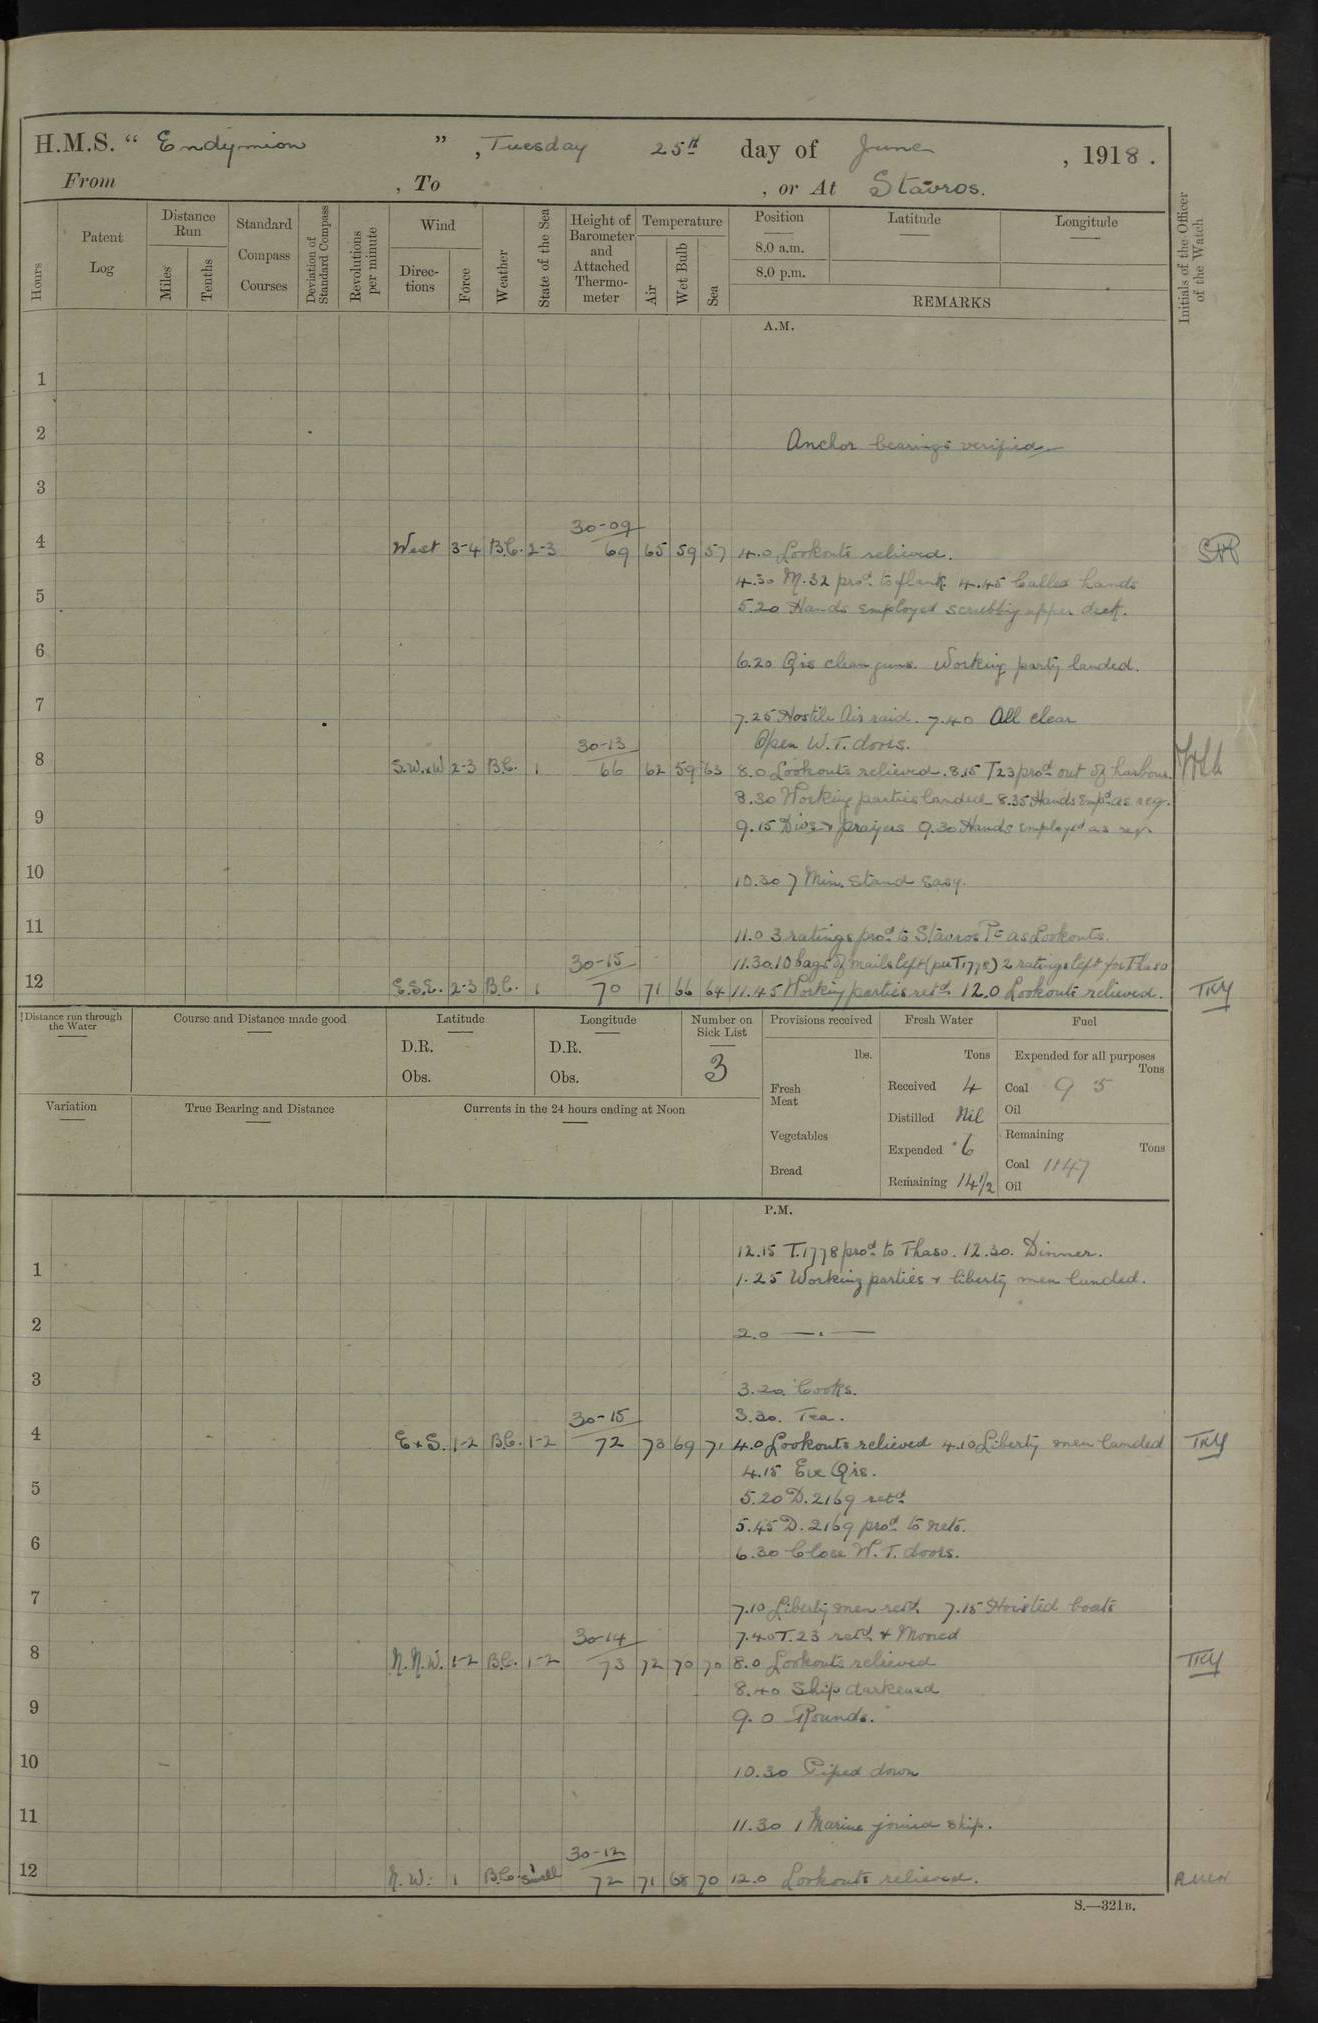 H.M.S. “ Endymion ” , Tuesday 25th day of June , 1918 .
From , To , or At Stavros.
Hours
Patent Log
Distance Run
Miles
Tenths
Standard Compass Courses
Deviation of Standard Compass
Revolutions per minute
Wind
Directions
Force
Weather
State of the Sea
Height of Barometer and Attached Thermometer
Temperature
Air
Wet Bulb
Sea
Position
8.0 a.m.
8.0 p.m.
Latitude
Longitude
REMARKS
Initials of the Officer of the Watch
A.M.
1
2 Anchor bearings verified
3
30-09
4 West 3-4 B.C. 2-3 69 65 59 57 4.0 Lookouts relieved.
4.30 M.32 procd. to flank. 4.45 Called hands
5 5.20 Hands employed scrubbing upper deck.
6 6.20 Qrs clean guns. Working party landed.
7 7.25 Hostile Air raid. 7.40 All clear
30-13 Open W.T. doors.
8 S.W.xW 2-3 B.C. 1 66 62 59 63 8.0 Lookouts relieved. 8.15 T23 procd. out of harbour.
8.30 Working parties landed 8.35 Hands Empd. as reg.
9 9.15 Divs + prayers 9.30 Hands employed as reqr.
10 10.30 7 Min. Stand Easy.
11 11.0 3 ratings procd. to Stavros Pt as Lookouts.
30-15 11.30. 10 bags of mails left (per T1778) 2 ratings left for Thaso
12 E.S.E. 2-3 B.C. 1 70 71 66 64 11.45 Working parties retd. 12.0 Lookouts relieved. TKY
Distance run through the Water
Course and Distance made good
Latitude
D.R.
Obs.
Longitude
D.R.
Obs.
Number on Sick List
3
Variation
True Bearing and Distance
Currents in the 24 hours ending at Noon
Provisions received
lbs.
Fresh Meat
Vegetables
Bread
Fresh Water
Tons
Received 4
Distilled Nil
Expended 6
Remaining 14½
Fuel
Expended for all purposes
Tons
Coal 9 5
Oil
Remaining
Tons
Coal 1147
Oil
P.M.
12.15 T.1778 procd. to Thaso. 12.30. Dinner.
1 1.25 Working parties + liberty men landed.
2 2.0 — . —
3 3.20. Cooks.
30-15 3.30. Tea.
4 E x S. 1-2 B.C. 1-2 72 73 69 71 4.0 Lookouts relieved 4.10 Liberty men landed TKY
4.15 Eve Qrs.
5 5.20 D.2169 retd.
5.45 D.2169 procd. to nets.
6 6.30 Close W.T. doors.
7 7.10 Liberty men retd. 7.15 Hoisted boats
30-14 7.40 T.23 retd. + Moored
8 N.N.W. 1-2 B.C. 1-2 73 72 70 70 8.0 Lookouts relieved TKY
8.40 Ship darkened
9 9.0 Rounds.
10 10.30 Piped down
11 11.30 1 Marine joined ship.
30-12
12 N.W. 1 B.C. 1 swell 72 71 68 70 12.0 Lookouts relieved.
S.—321B.